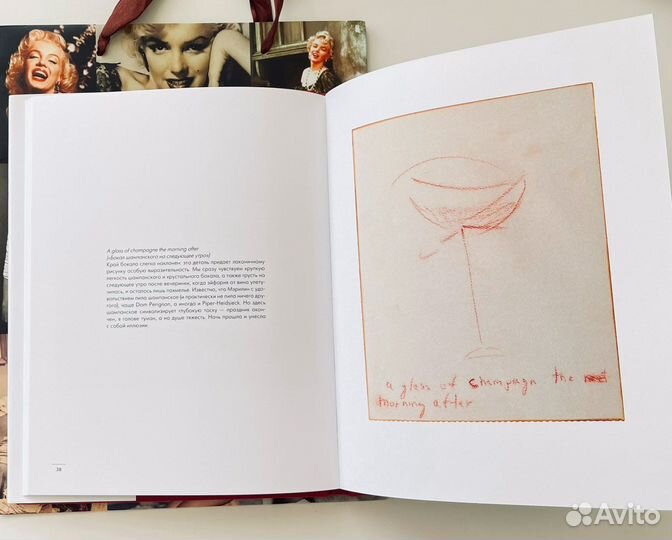 A glass of champagne the morning after
(«Бокал шампанского на следующее утро»)
Край бокала слегка наклонен: эта деталь придает лаконичному
рисунку особую выразительность. Мы сразу чувствуем хрупкую
легкость шампанского и хрустального бокала, а также грусть на
следующее утро после вечеринки, когда эйфория от вина улету-
чилась, и осталось лишь похмелье. Известно, что Мэрилин с удо-
вольствием пила шампанское (и практически не пила ничего дру-
гого), чаще Dom Perignon, а иногда и Piper-Heidsieck. Но здесь
шампанское символизирует глубокую тоску — праздник окон-
чен, в голове туман, а на душе тяжесть. Ночь прошла и унесла
с собой иллюзии.
38
a glass of champagn the
morning after
Avito